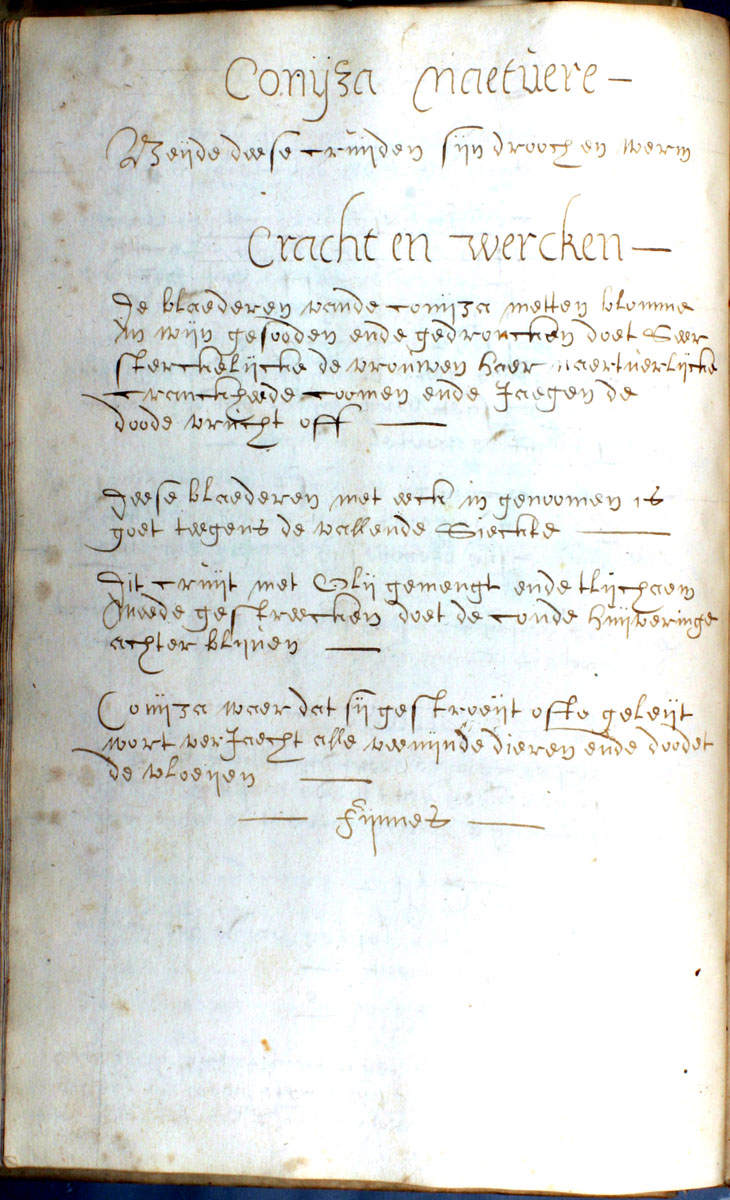 Conijza naetuere
Beijde deese cruijden sijn drooch en werm
Cracht en wercken
De blaederen vande conijza metten blomme
In wijn gesooden ende gedroncken doet seer
sterckelijcke de vrouwen haer naertuerlijcke
cranckheede coomen ende Jaegen de
doode vrucht off
Deese blaederen met eeck in genoomen is
goet teegens de vallende sieckte
Dit cruijt met Olij gemengt ende tlijchaem
Meede gestreecken doet de coude huijveringe
achter blijven
Conijza waer dat sij gestroeijt ofte geleijt
wort verJaecht alle veenijnde dieren ende doodet
de vloeijen
Fijnnes